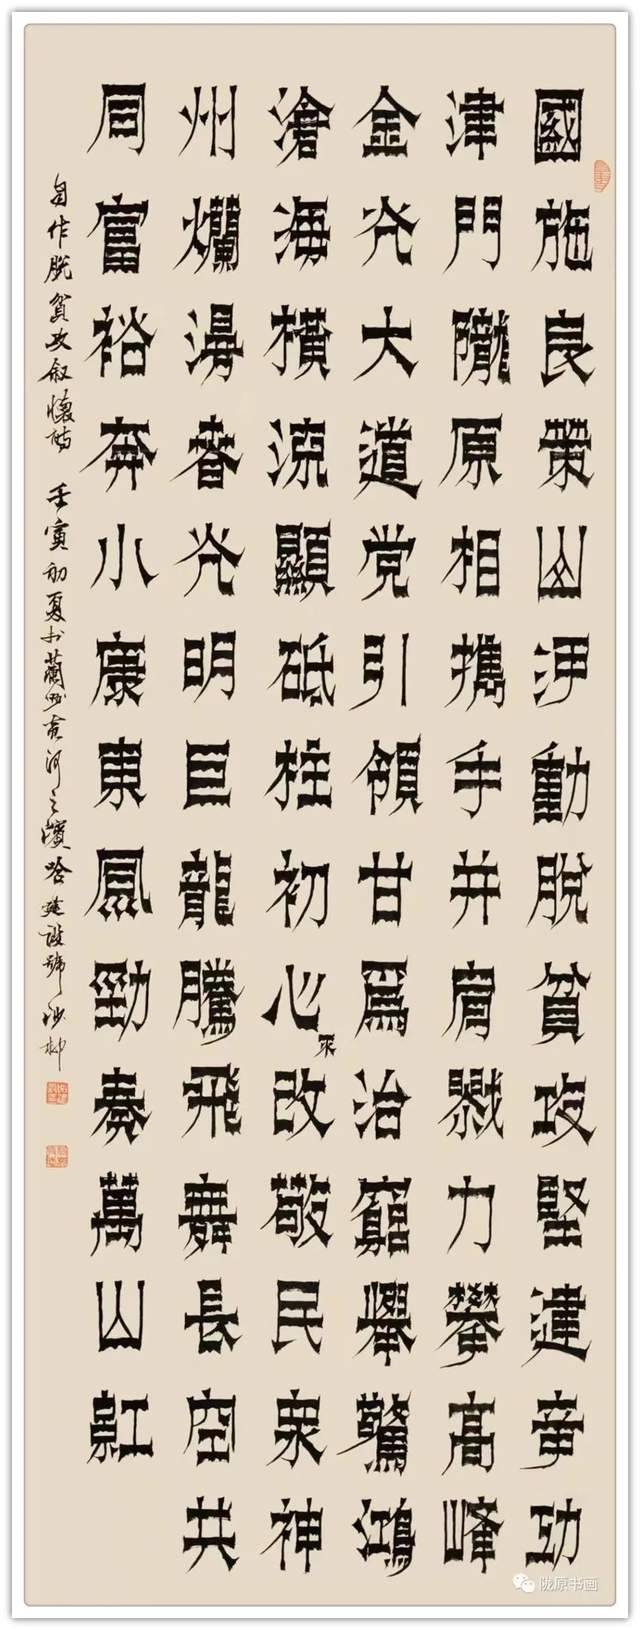 國施良策山河動脫貧攻堅建竒功
津門隴原相攜手并肩戮力攀高峰
金光大道党引領甘爲治窮舉驚鴻
滄海橫流顯砥柱初心改敬民衆神
州爛漫春光明巨龍騰飛舞長空共
同富裕奔小康東風勁奏萬山紅
自作脫貧攻叙懷詩 壬寅初夏於蘭州黄河之濱哈建設號沙柳
陇原书画